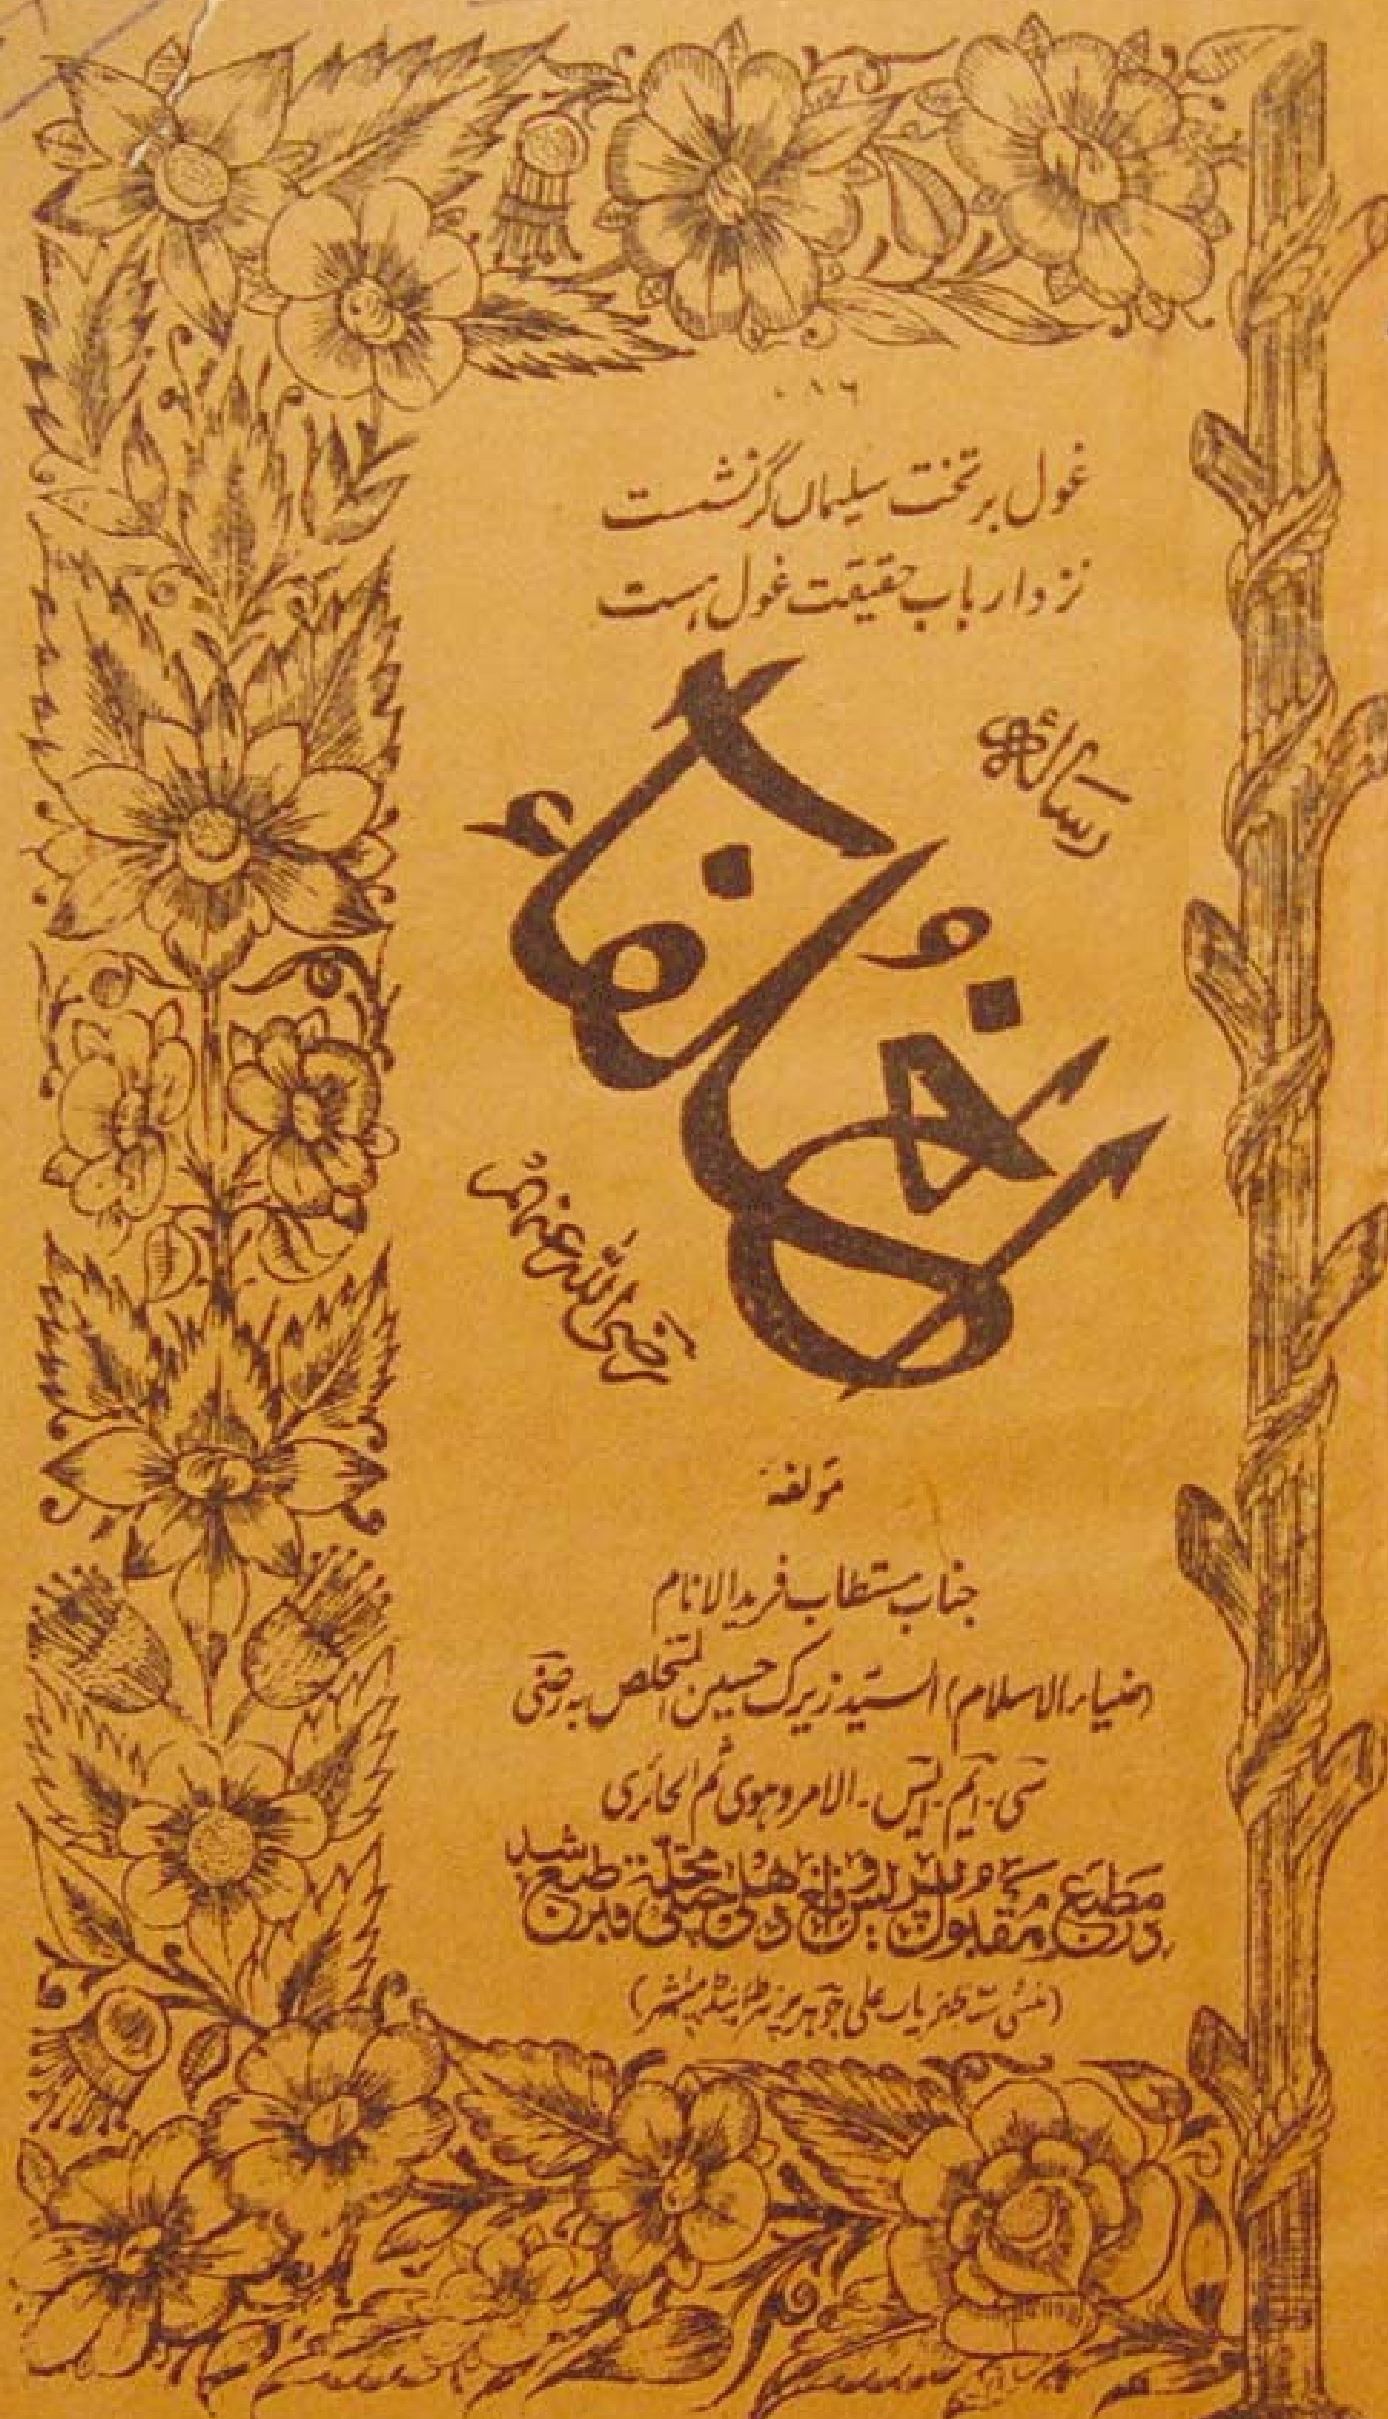 ۷۸۶
غول بر تخت سلیماں گر نشست
نزد ارباب حقیقت غول ہست
رسالۂ
رضی اللہ عنہم
مؤلفہ
جناب مستطاب فرید الانام
(ضیاء الاسلام) السید زیرک حسین المتخلص بہ رضی
سی - ایم - ایس - الامروہوی ثم الحائری
در مطبع مقبول پریس واقع دہلی محلہ طبع شد
(منشی سید ظفریاب علی جوہر پرنٹر اینڈ پبلشر)